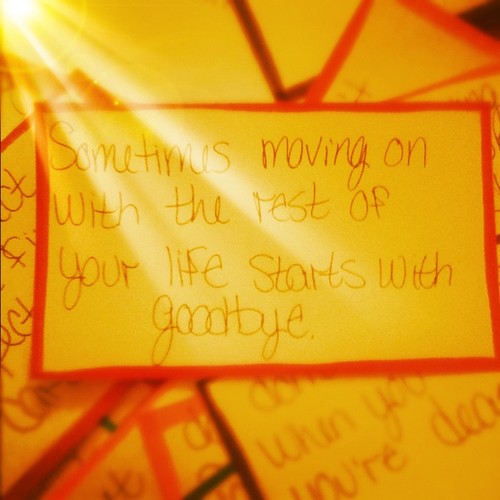 Sometimes moving on
with the rest of
your life starts with
goodbye.
when you
you're